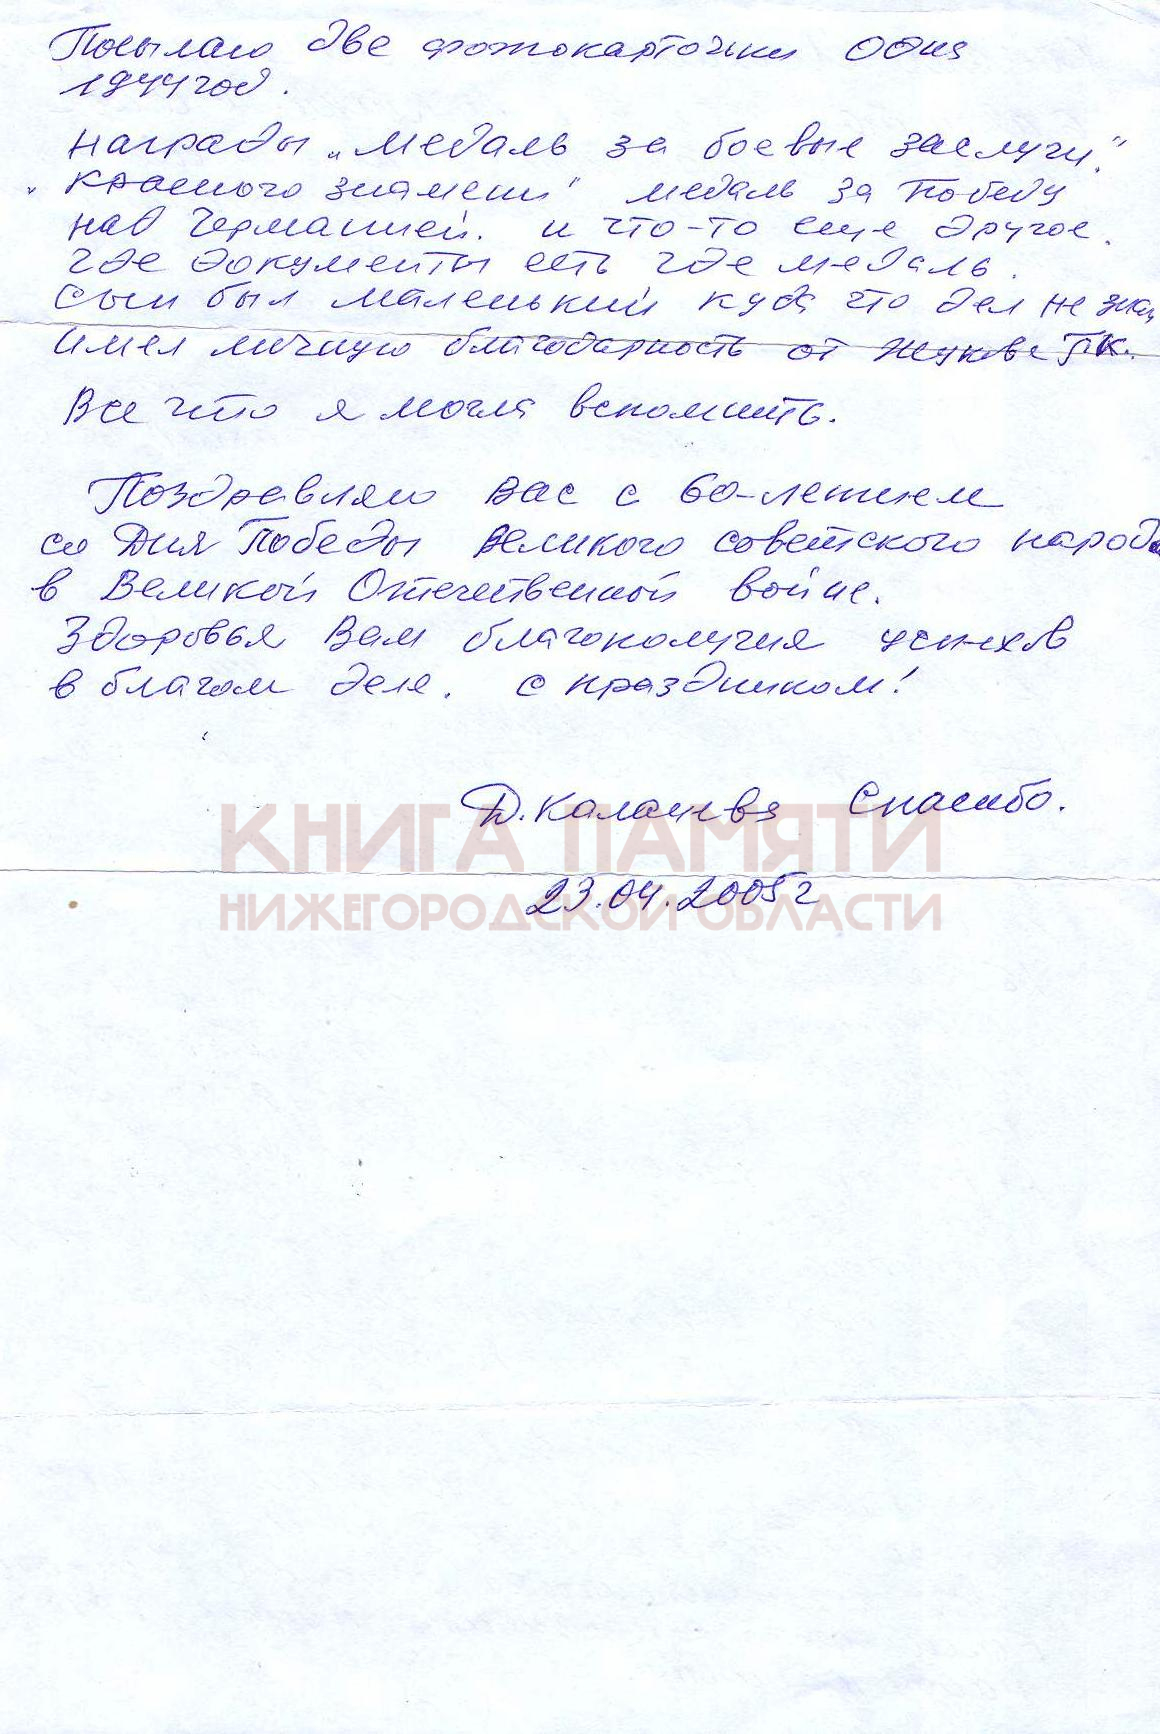 Посылаю две фотокарточки одна
1944 год.
Награды „Медаль за боевые заслуги."
„Красного знамени" медаль за Победу
над Германией. и что-то еще другое.
Где документы есть где медаль.
Сын был маленький куда что дел не знаю
Имел личную благодарность от Жукова Г.К.
Все что я могла вспомнить.
Поздравляю Вас с 60-летием
со Дня Победы Великого советского народа
в Великой Отечественной войне.
Здоровья Вам благополучия успехов
в благом деле. С праздником!
Спасибо.
КНИГА ПАМЯТИ
23.04.2005г
НИЖЕГОРОДСКОЙ ОБЛАСТИ